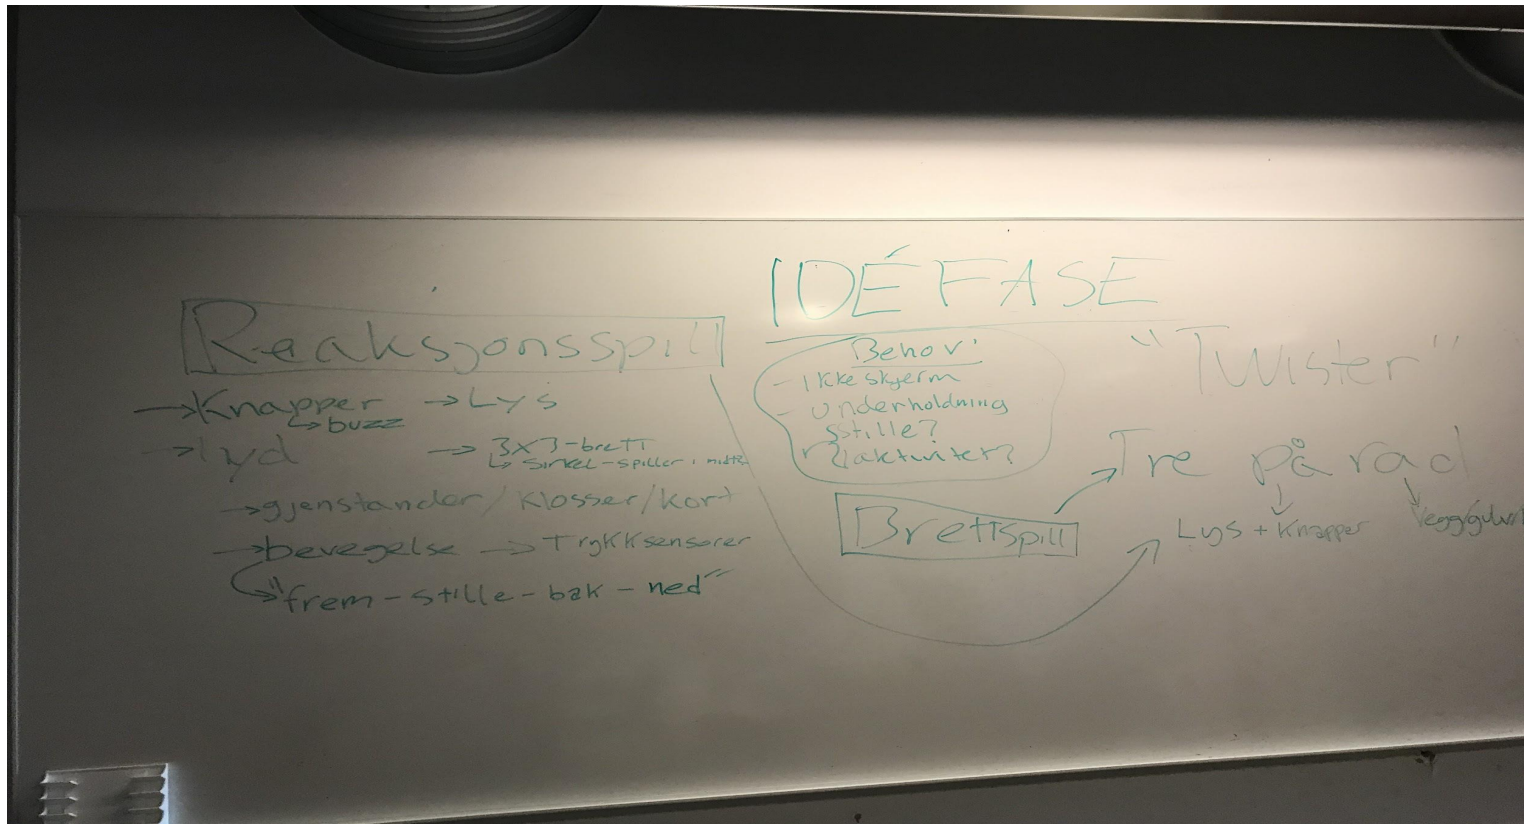 IDÉFASE
Reaksjonsspill
→ Knapper → Lys
↳ buzz
→ lyd → 3x3-brett
↳ Sirkel-spiller i midten
→ gjenstander/klosser/kort
→ bevegelse → Trykksensorer
"frem-stille-bak-ned"
Behov:
- Ikke skjerm
- Underholdning
stille?
aktivitet?
"Twister"
Brettspill → Tre på rad
Lys + Knapper
Vegg/gulv